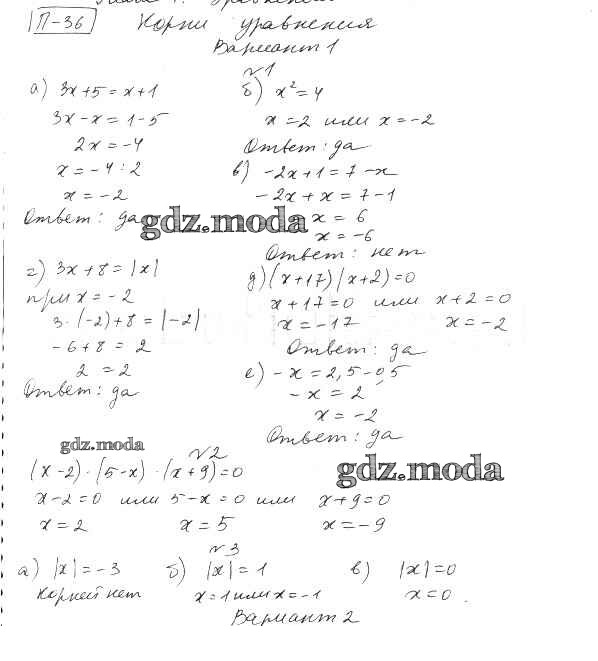 П-36 Корни уравнения
Вариант 1
№1
а) 3x+5=x+1
3x-x=1-5
2x=-4
x=-4:2
x=-2
Ответ: да
б) x²=4
x=2 или x=-2
Ответ: да
в) -2x+1=7-x
-2x+x=7-1
x=6
x=-6
Ответ: нет
gdz.moda
г) 3x+8=|x|
при x=-2
3·(-2)+8=|-2|
-6+8=2
2=2
Ответ: да
д) (x+17)(x+2)=0
x+17=0 или x+2=0
x=-17 x=-2
Ответ: да
е) -x=2,5-0,5
-x=2
x=-2
Ответ: да
gdz.moda
№2
(x-2)·(5-x)·(x+9)=0
x-2=0 или 5-x=0 или x+9=0
x=2 x=5 x=-9
gdz.moda
№3
а) |x|=-3 б) |x|=1 в) |x|=0
Корней нет x=1 или x=-1 x=0.
Вариант 2